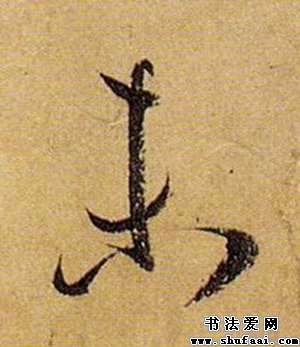 未
书法爱网
www.shufaai.com